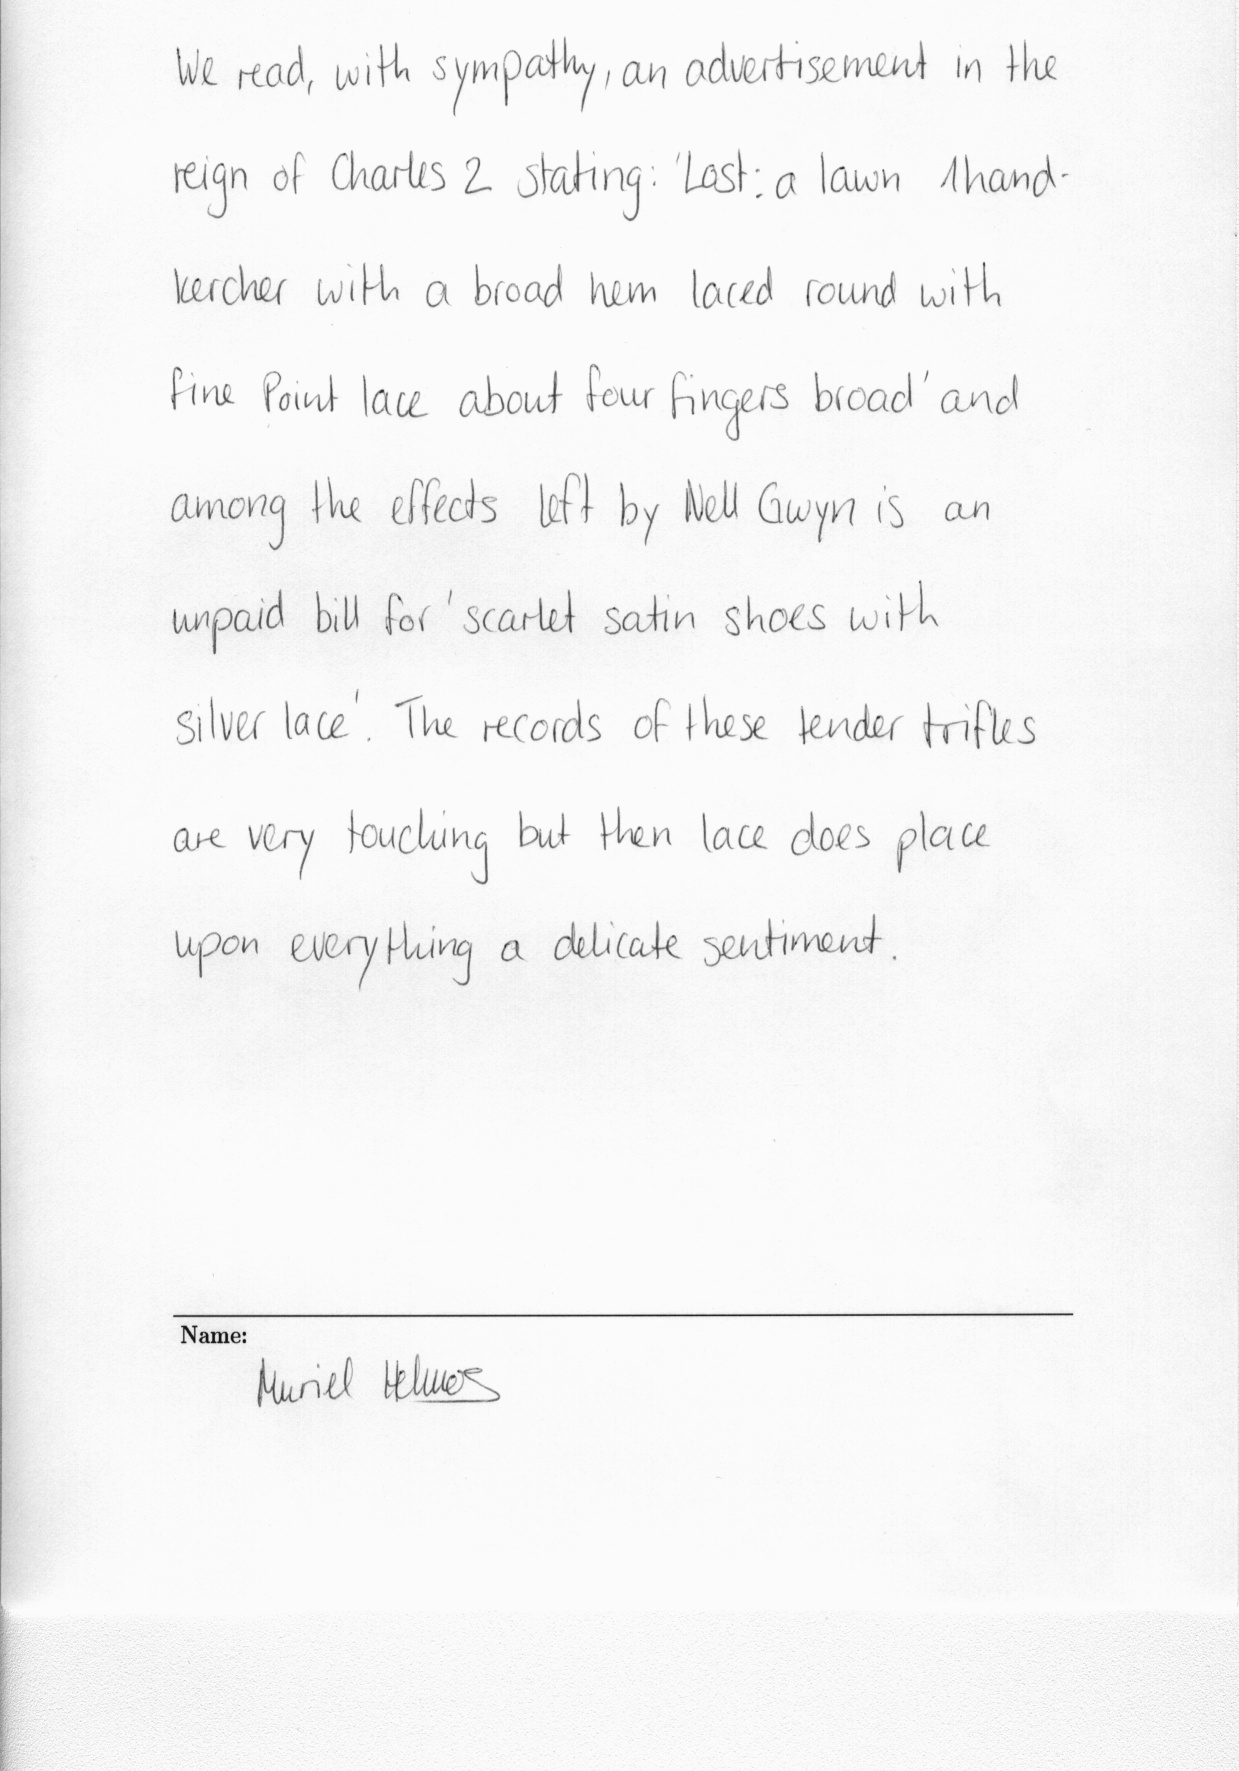 We read, with sympathy, an advertisement in the
reign of Charles 2 stating: 'Lost: a lawn 1hand-
kercher with a broad hem laced round with
fine Point lace about four fingers broad' and
among the effects left by Nell Gwyn is an
unpaid bill for 'scarlet satin shoes with
silver lace'. The records of these tender trifles
are very touching but then lace does place
upon everything a delicate sentiment.
Name:
Muriel